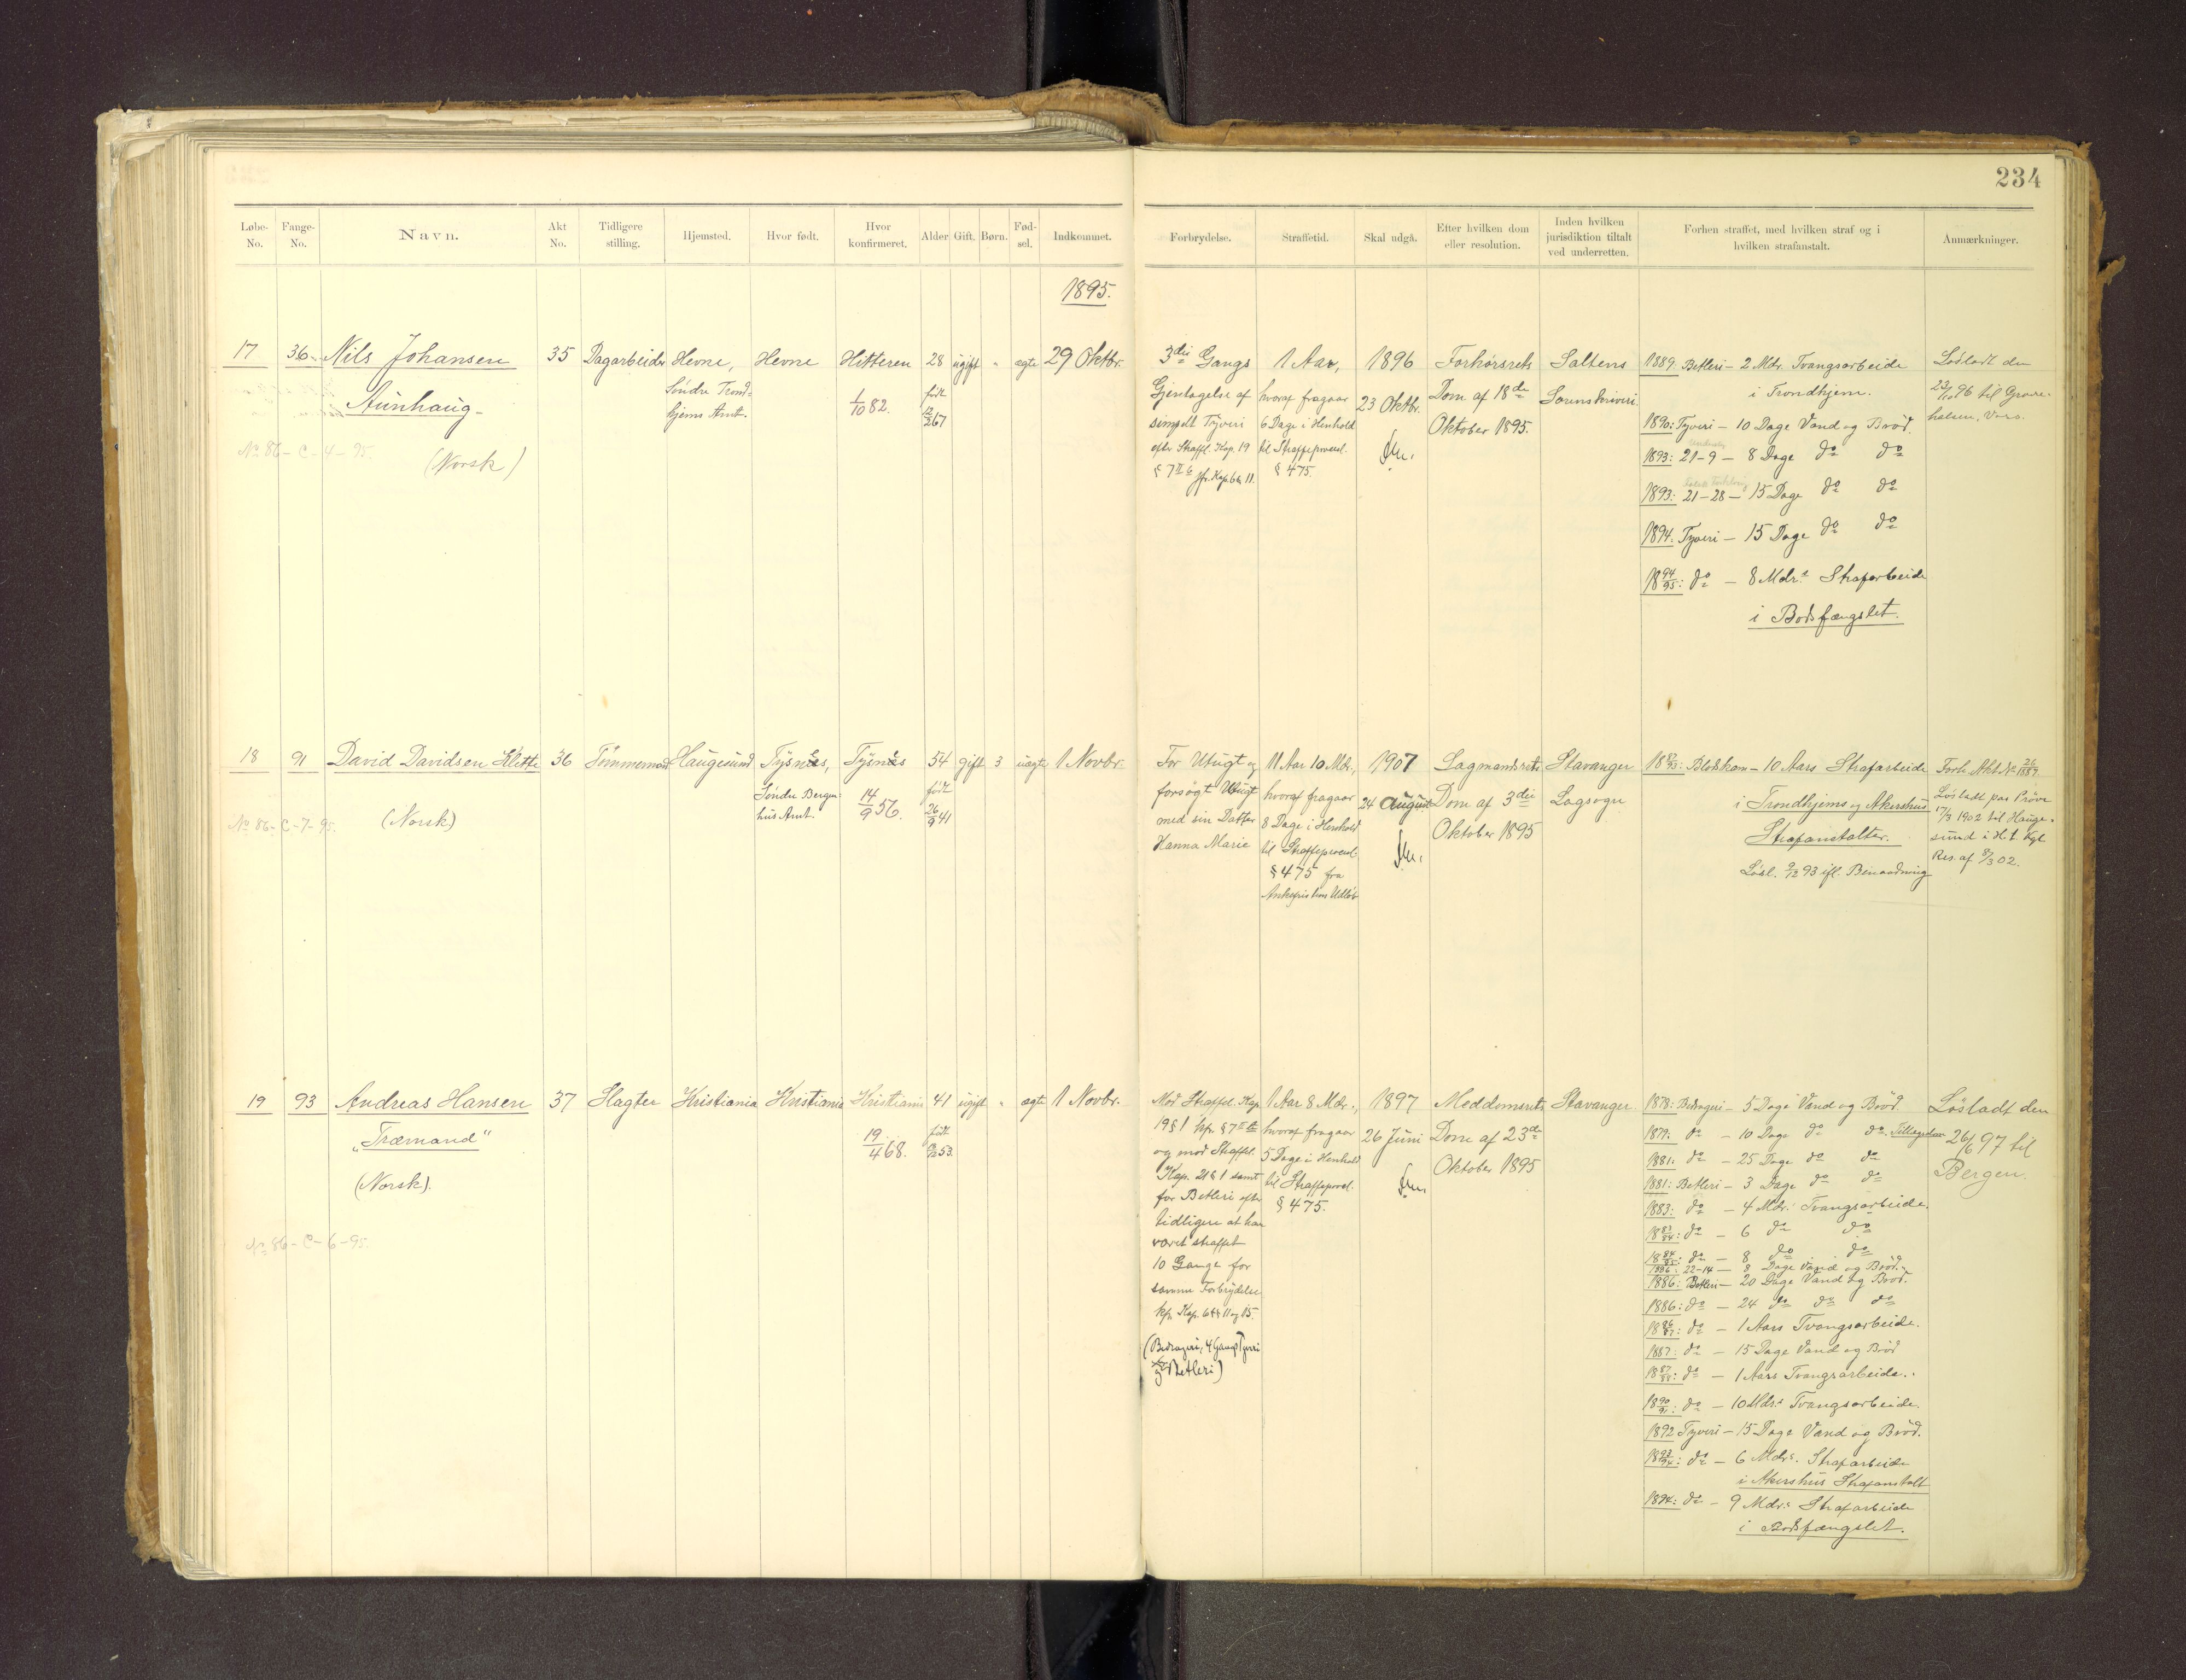 234
Løbe-No. Fange-No. Navn. Akt No. Tidligere stilling. Hjemsted. Hvor født. Hvor konfirmeret. Alder Gift. Børn. Fød-sel. Indkommet.
Forbrydelse. Straffetid. Skal udgå. Efter hvilken dom eller resolution. Inden hvilken jurisdiktion tiltalt ved underretten. Forhen straffet, med hvilken straf og i hvilken strafanstalt. Anmærkninger.
1895.
17 36 Nils Johansen 35 Dagarbeider Hevne, Hevne Hitteren 28 ugift " ægte 29 Oktbr.
Aunhaug
Søndre Trond-
hjems Amt.
1/10 82.
født
12/2 67
No 86-C-4-95.
(Norsk)
3die Gangs
Gjentagelse af
simpelt Tyveri
efter Straffl. Kap. 19
§ 7
jfr. Kap. 6 § 11.
1 Aar,
hvoraf fragaar
6 Dage i Henhold
til Straffeprocesl.
§ 475.
1896
23 Oktbr.
Forhørsrets
Dom af 18de
Oktober 1895.
Saltens
Sorenskriveri.
1889. Betleri - 2 Mdr. Tvangsarbeide
i Trondhjem.
1890: Tyveri - 10 Dage Vand og Brød.
1893: 21-9 - 8 Dage do do
1893: 21-28 - 15 Dage do do
1894. Tyveri - 15 Dage do do
1894/95: do - 8 Mdr.s Strafarbeide
i Bodsfængslet.
Løsladt den
23/10 96 til
18 91 David Davidsen Klette 36 Tømmermand Haugesund Tysnes, Tysnes 54 gift 3 uægte 1 Novbr.
Søndre Bergen-
hus Amt.
14/9 56.
født
26/9 41
No 86-C-7-95.
(Norsk)
For Utugt og
forsøgt Utugt
med sin Datter
Hanna Marie
11 Aar 10 Mdr.,
hvoraf fragaar
8 Dage i Henhold
til Straffeprocesl.
§ 475 fra
Ankefristens Udløb
1907
24 August
Lagmandsrets
Dom af 3die
Oktober 1895
Stavanger
Lagsogn
1887/93: Blodskam - 10 Aars Strafarbeide
i Trondhjems og Akershus
Strafanstalter.
Løsl. 2/12 93 ifl. Benaadning
Forh. Akt No 26/1887.
Løsladt paa Prøve
17/3 1902 til Hauge-
sund i H. t. Kgl.
Res. af 8/3 02.
19 93 Andreas Hansen 37 Slagter Kristiania Kristiania Kristiania 41 ugift " ægte 1 Novbr.
"Træmand"
19/4 68.
født
53.
(Norsk).
No 86-C-6-95.
Mod Straffel. Kap.
19 § 1 kfr. § 7
og mod Straffel.
Kap. 21 § 1 samt
for Betleri efter
tidligere at have
været straffet
10 Gange for
samme Forbrydelse
kfr. Kap. 6 §§ 11 og 15.
(Bedrageri, 4 Gangs Tyveri
og Betleri)
1 Aar 8 Mdr.,
hvoraf fragaar
5 Dage i Henhold
til Straffeprocesl.
§ 475.
1897
26 Juni
Meddomsrets
Dom af 23de
Oktober 1895
Stavanger
1878: Bedrageri - 5 Dage Vand og Brød.
1879. do - 10 Dage do do. Tillægsdom
1881. do - 25 Dage do do
1881: Betleri - 3 Dage do do
1883: do - 4 Mdr. Tvangsarbeide.
1883/84: do - 6 do do
1884/85: do - 8 do do
1886: 22-14 - 8 Dage Vand og Brød.
1886: Betleri - 20 Dage Vand og Brød.
1886: do - 24 do do do
1886/87: do - 1 Aars Tvangsarbeide.
1887: do - 15 Dage Vand og Brød
1887/88: do - 1 Aars Tvangsarbeide.
1890/91: do - 10 Mdr.s Tvangsarbeide.
1892 Tyveri - 15 Dage Vand og Brød.
1893/94: do - 6 Mdrs. Strafarbeide
i Akershus Strafanstalt
1894: do - 9 Mdr.s Strafarbeide
i Bodsfængslet.
Løsladt den
26/6 97 til
Bergen.